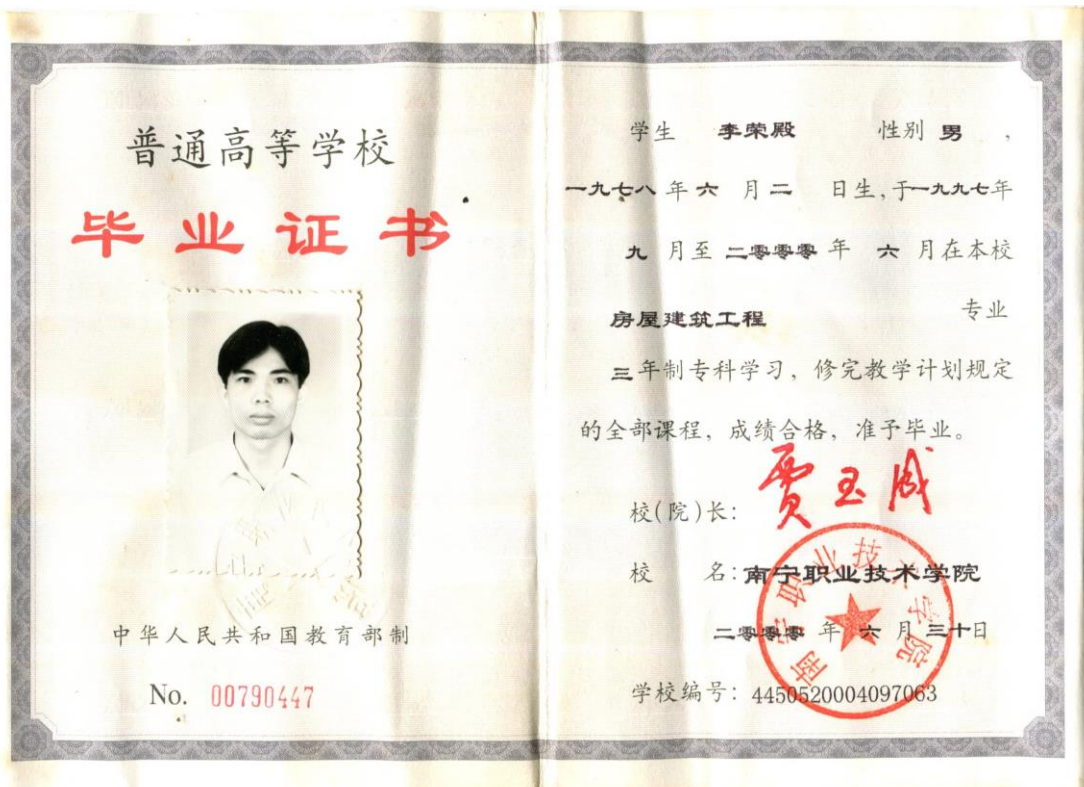 普通高等学校
毕业证书
中华人民共和国教育部制
No. 00790447
学生 李荣殿 性别 男 ，
一九七八年六月二日生，于一九九七年
九月至二零零零年六月在本校
房屋建筑工程 专业
三年制专科学习，修完教学计划规定
的全部课程，成绩合格，准予毕业。
校(院)长：贾玉成
校 名：南宁职业技术学院
二零零零年六月三十日
学校编号：4450520004097063
南宁职业技术学院